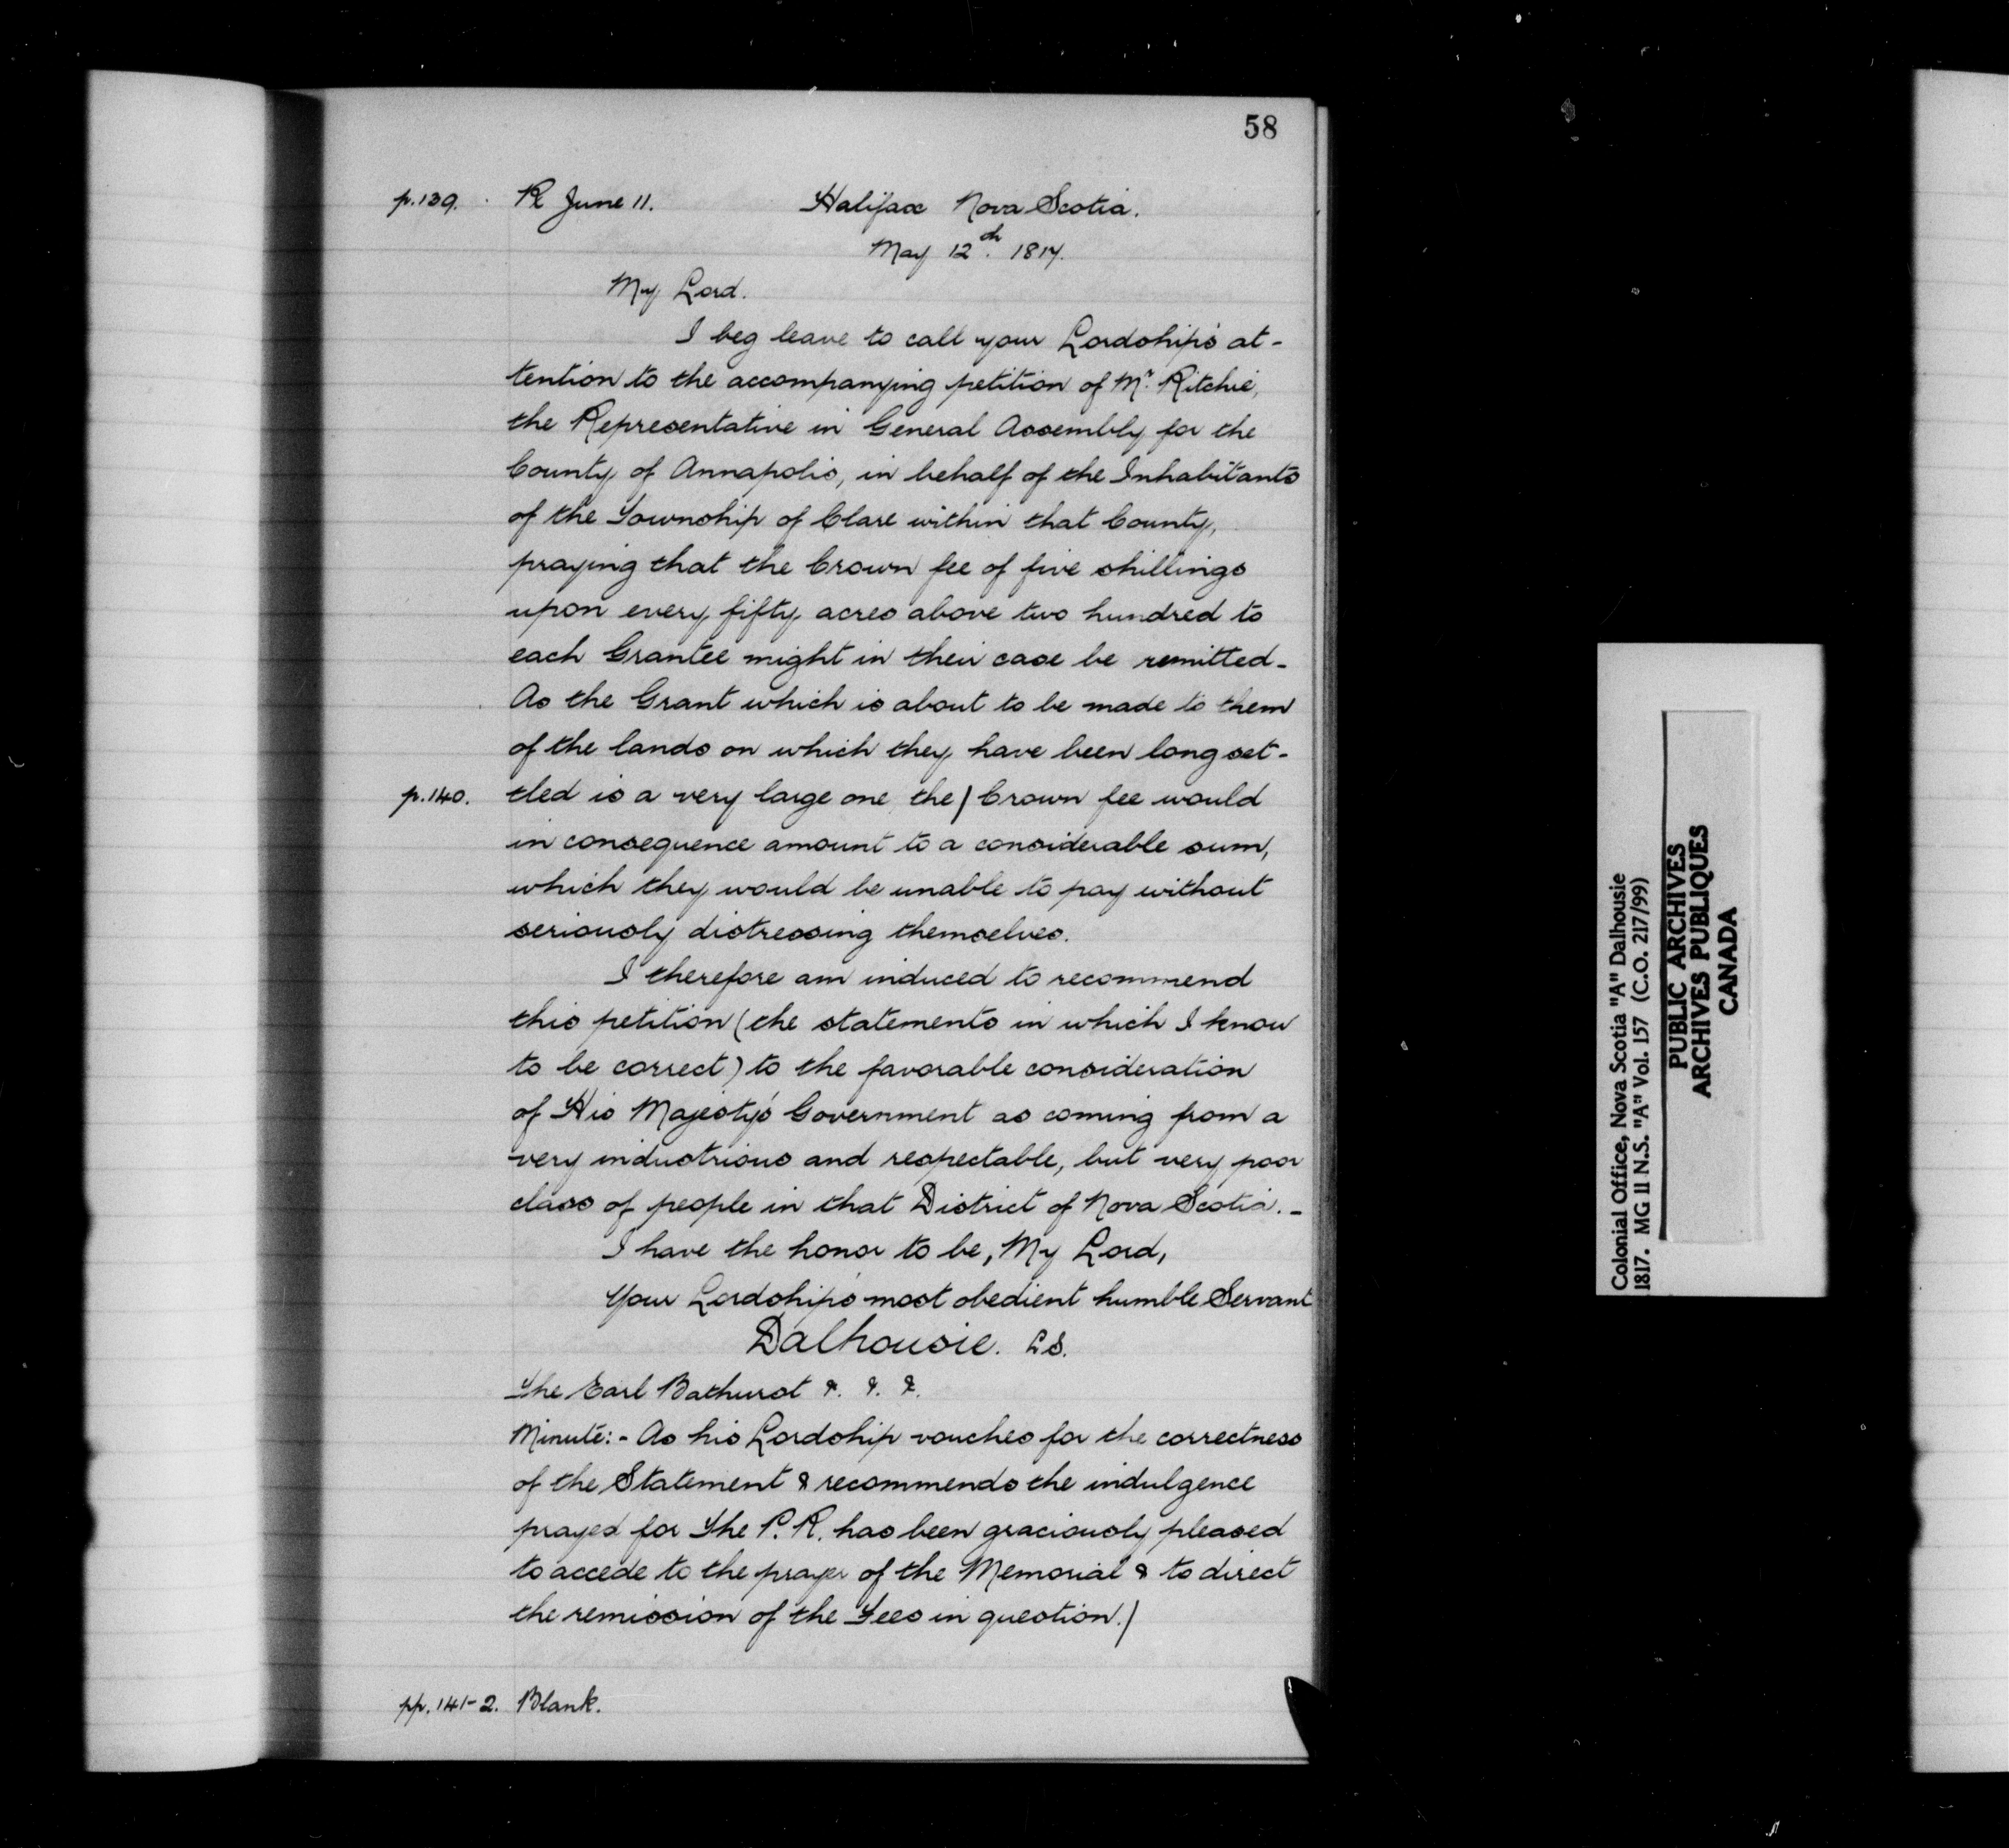 58
p.139. Rc June 11. Halifax Nova Scotia.
May 12th. 1817.
My Lord.
I beg leave to call your Lordship's at-
tention to the accompanying petition of Mr. Ritchie,
the Representative in General Assembly for the
County of Annapolis, in behalf of the Inhabitants
of the Township of Clare within that County,
praying that the Crown fee of five shillings
upon every fifty acres above two hundred to
each Grantee might in their case be remitted-
As the Grant which is about to be made to them
of the lands on which they have been long set-
p.140. tled is a very large one the / Crown fee would
in consequence amount to a considerable sum,
which they would be unable to pay without
seriously distressing themselves.
I therefore am induced to recommend
this petition (the statements in which I know
to be correct) to the favorable consideration
of His Majesty's Government as coming from a
very industrious and respectable, but very poor
class of people in that District of Nova Scotia.-
I have the honor to be, My Lord,
Your Lordship's most obedient humble Servant
Dalhousie. LS.
The Earl Bathurst &. &. &.
Minute:- As his Lordship vouches for the correctness
of the Statement & recommends the indulgence
prayed for The P.R. has been graciously pleased
to accede to the prayer of the Memorial & to direct
the remission of the Fees in question./
pp.141-2. Blank.
Colonial Office, Nova Scotia "A" Dalhousie
1817. MG 11 N.S. "A" Vol. 157 (C.O. 217/99)
PUBLIC ARCHIVES
ARCHIVES PUBLIQUES
CANADA